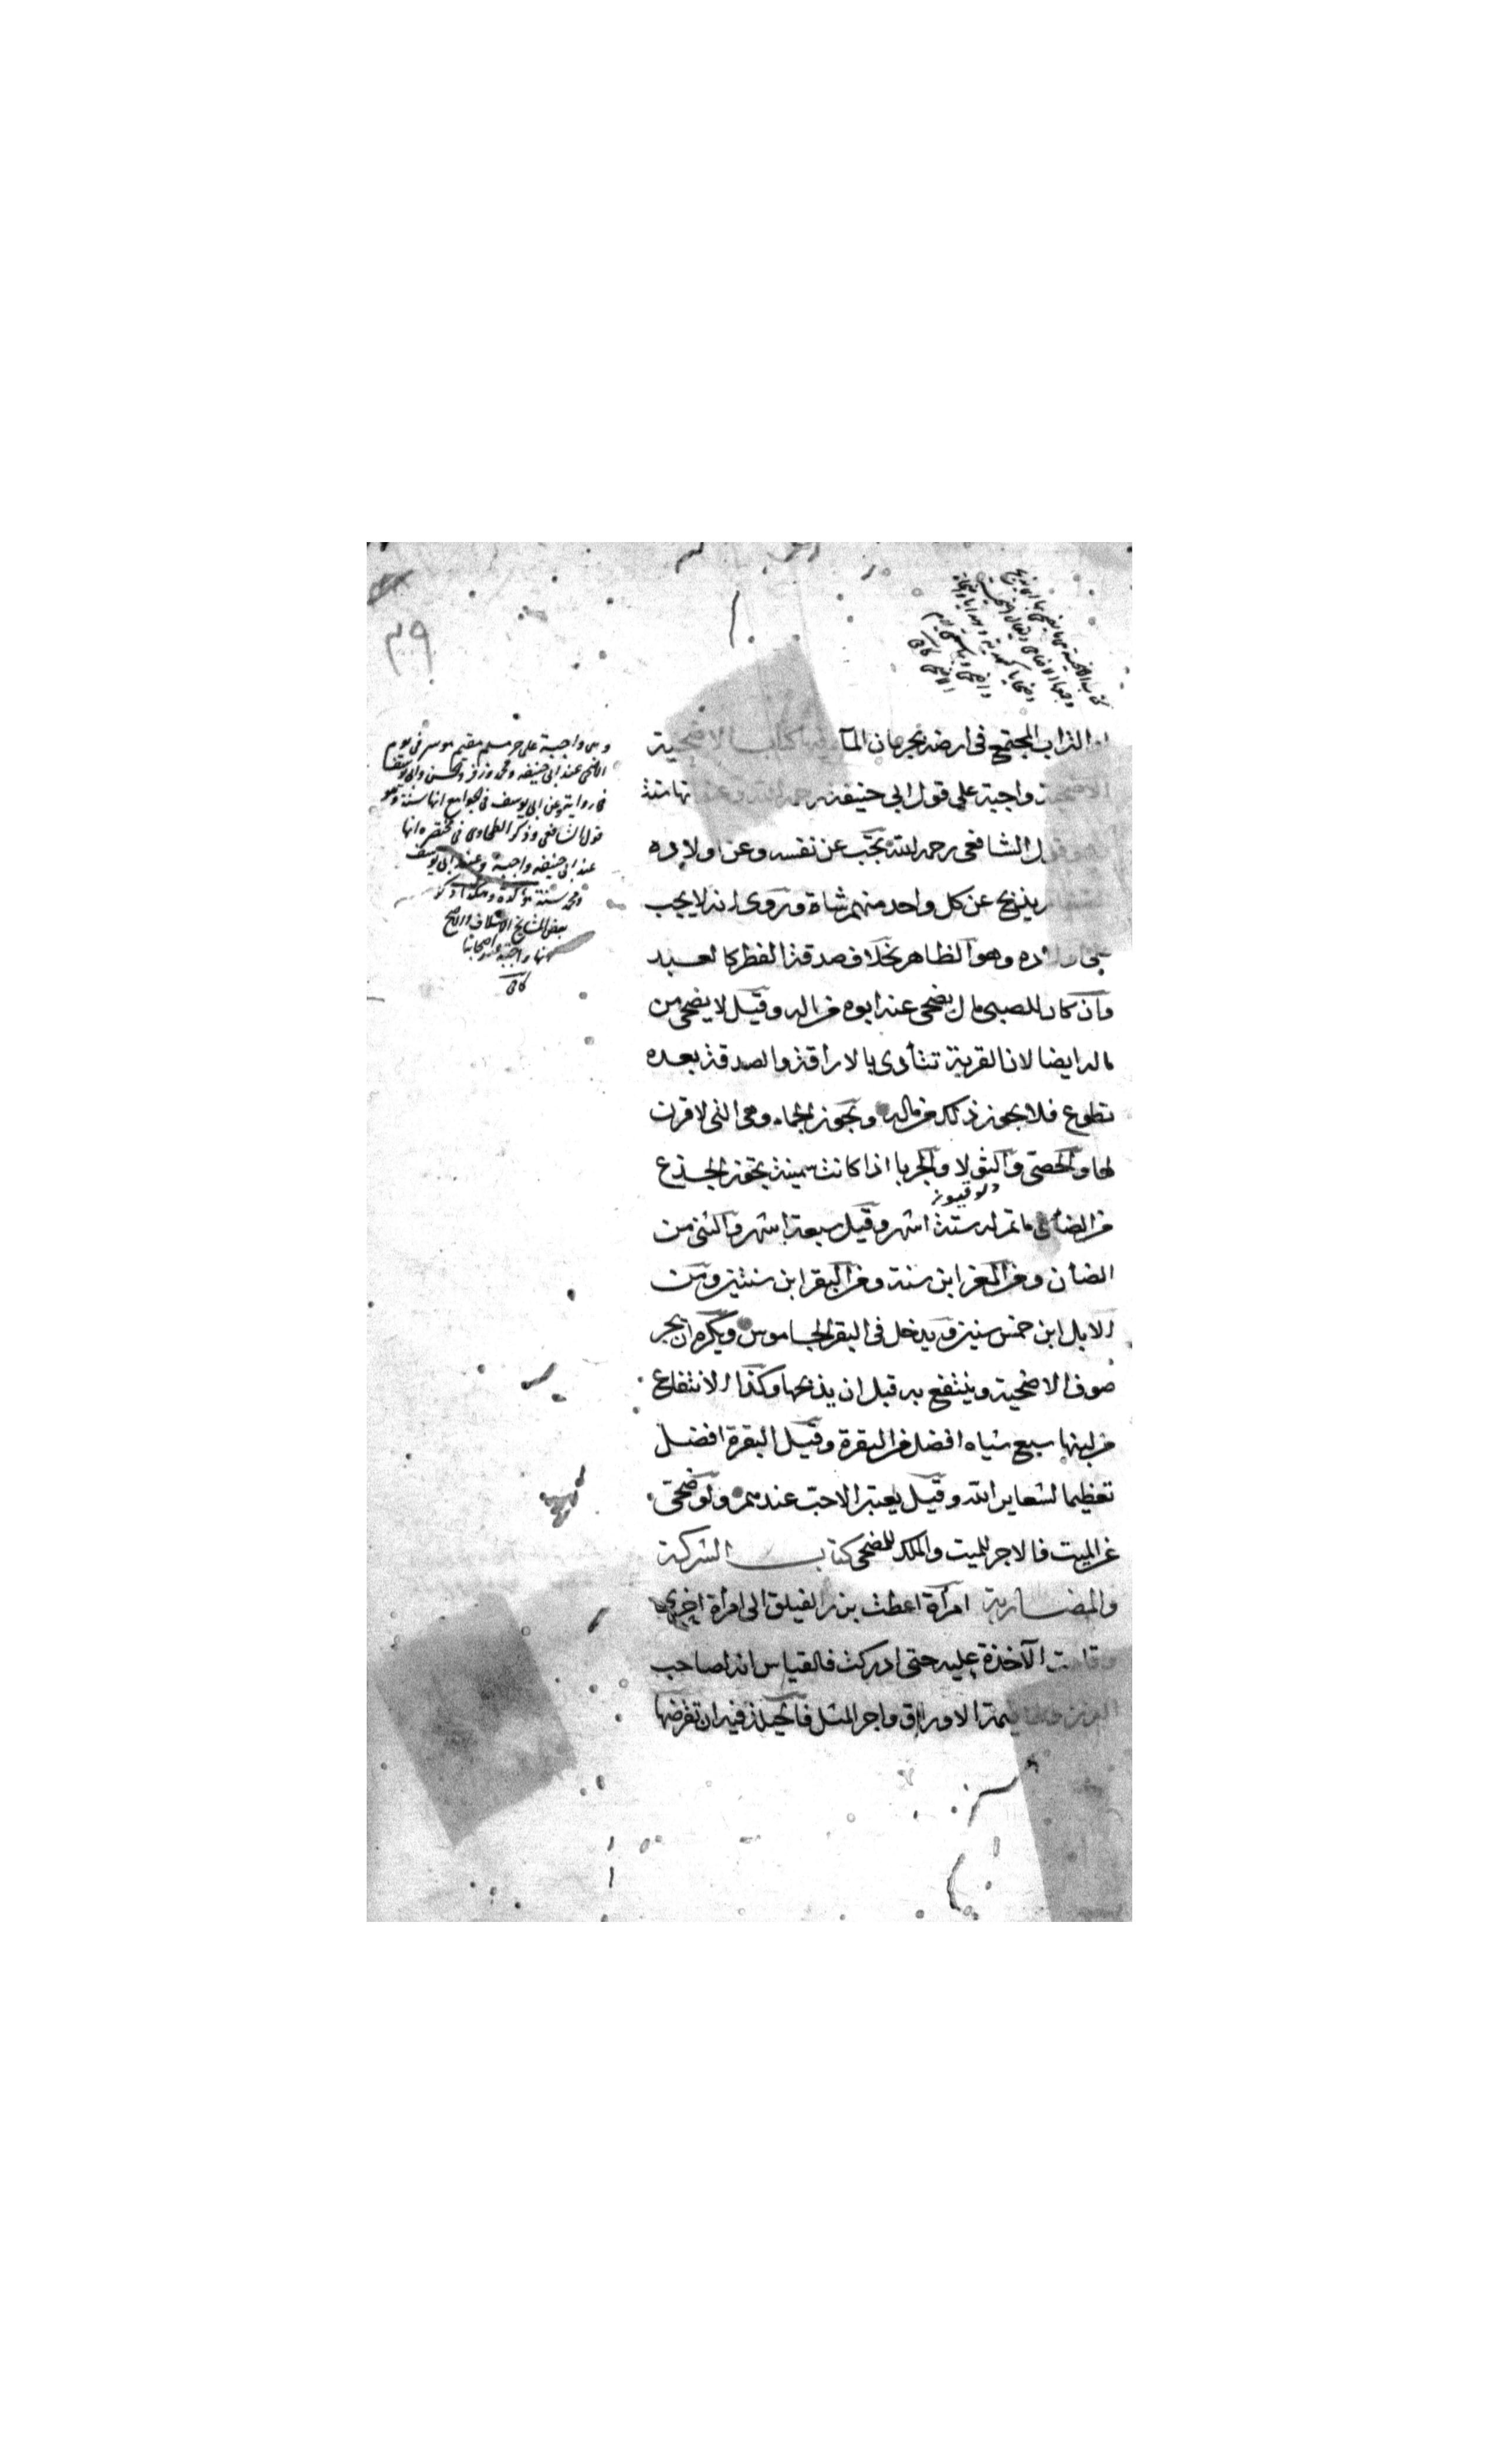 التراب المجتمع في ارضه بجريان الماء فيها كتاب الاضحية
الاضحية واجبة على قول ابي حنيفة رحمه الله وعنه انها سنة
وهو قول الشافعي رحمه الله تجب عن نفسه وعن اولاده
يذبح عن كل واحد منهم شاة وروى انه لا يجب
على اولاده وهو الظاهر بخلاف صدقة الفطر كالعبد
وان كان للصبي مال يضحى عنه ابوه من ماله وقيل لا يضحى من
ماله ايضا لان القربة تتأدى بالاراقة والصدقة بعده
تطوع فلا يجوز ذلك من ماله ويجوز الجماء وهي التي لا قرن
لها والخصي والثولا والجربا اذا كانت سمينة يجوز الجذع
من الضأن ما تم له ستة اشهر وقيل سبعة اشهر والثنى من
الضأن ومن المعز ابن سنة ومن البقر ابن سنتين ومن
الابل ابن خمس سنين ويدخل في البقر الجاموس ويكره ان يجز
صوف الاضحية وينتفع به قبل ان يذبحها وكذا الانتفاع
من لبنها سبع شياه افضل من البقرة وقيل البقرة افضل
تعظيما لشعاير الله وقيل يعتبر الاحب عندهم ولو ضحى
عن الميت فالاجر للميت والملك للمضحى كتاب الشركة
والمضاربة امرأة اعطت بزر الفيلق الى امرأة اخرى
وقامت الآخذة عليه حتى ادركت فالقياس انه لصاحب
البزر وعليه قيمة الاوراق واجر المثل فالحيلة فيه ان تقرضها
٣٩
وهي واجبة على حر مسلم مقيم موسر في يوم
الاضحى عند ابي حنيفة ومحمد وزفر والحسن وابي يوسف
في رواية وعن ابي يوسف في الجوامع انها سنة وهو
قول الشافعي وذكر الطحاوي في مختصره انها
عند ابي حنيفه واجبة وعند ابي يوسف
ومحمد سنة مؤكدة وهكذا ذكر
بعض المشايخ الاختلاف والاصح
انها واجبة عند اصحابنا
كافي